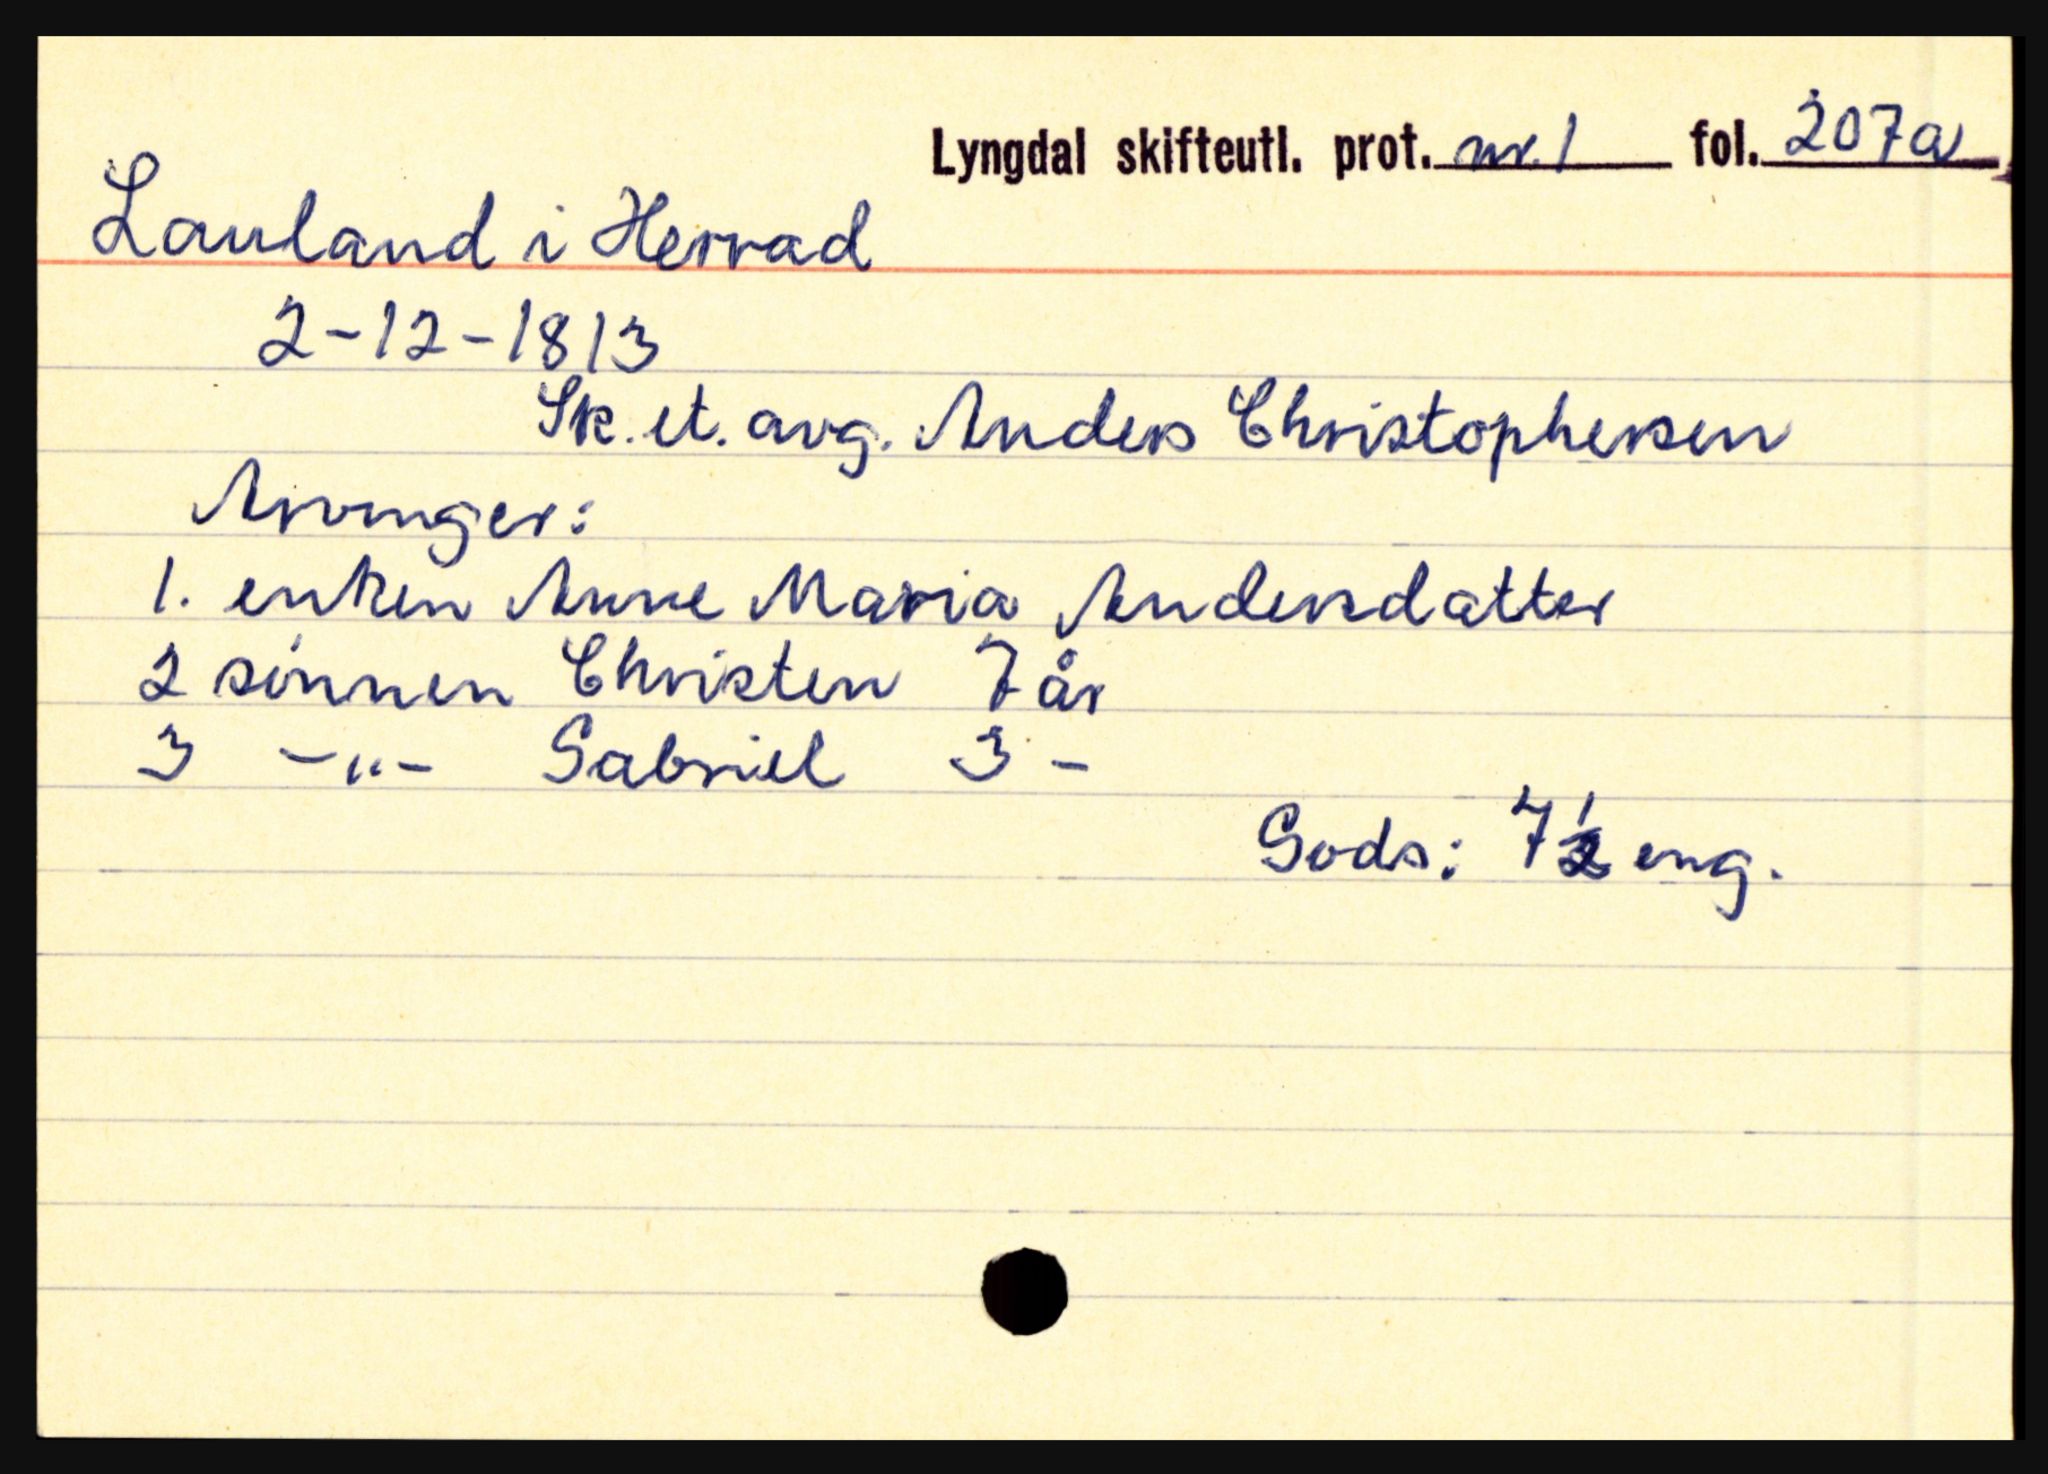 Lyngdal skifteutl. prot. nr. 1 fol. 207a
Lauland i Herrad
2-12-1813
Sk. et. avg. Anders Christophersen
Arvinger:
1. enken Anne Maria Andersdatter
2 sönnen Christen 7 år
3 -"- Gabriel 3 -
Gods: 7 1/2 eng.